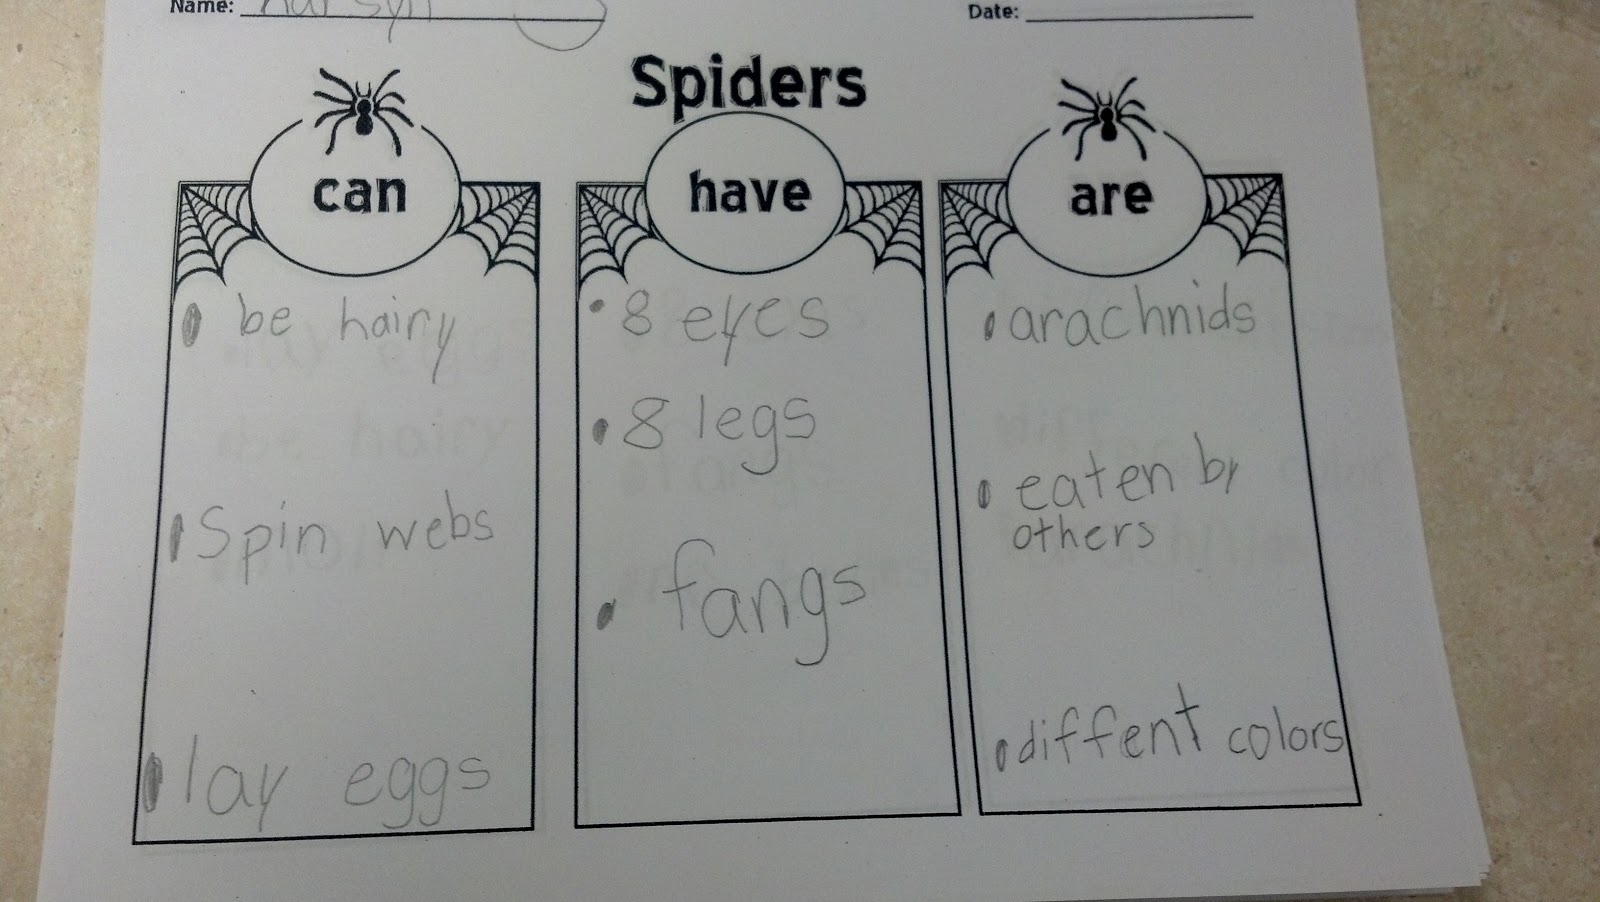 Name:
Date:
Spiders
can
• be hairy
• Spin webs
• lay eggs
have
• 8 eyes
• 8 legs
• fangs
are
• arachnids
• eaten by
others
• diffent colors